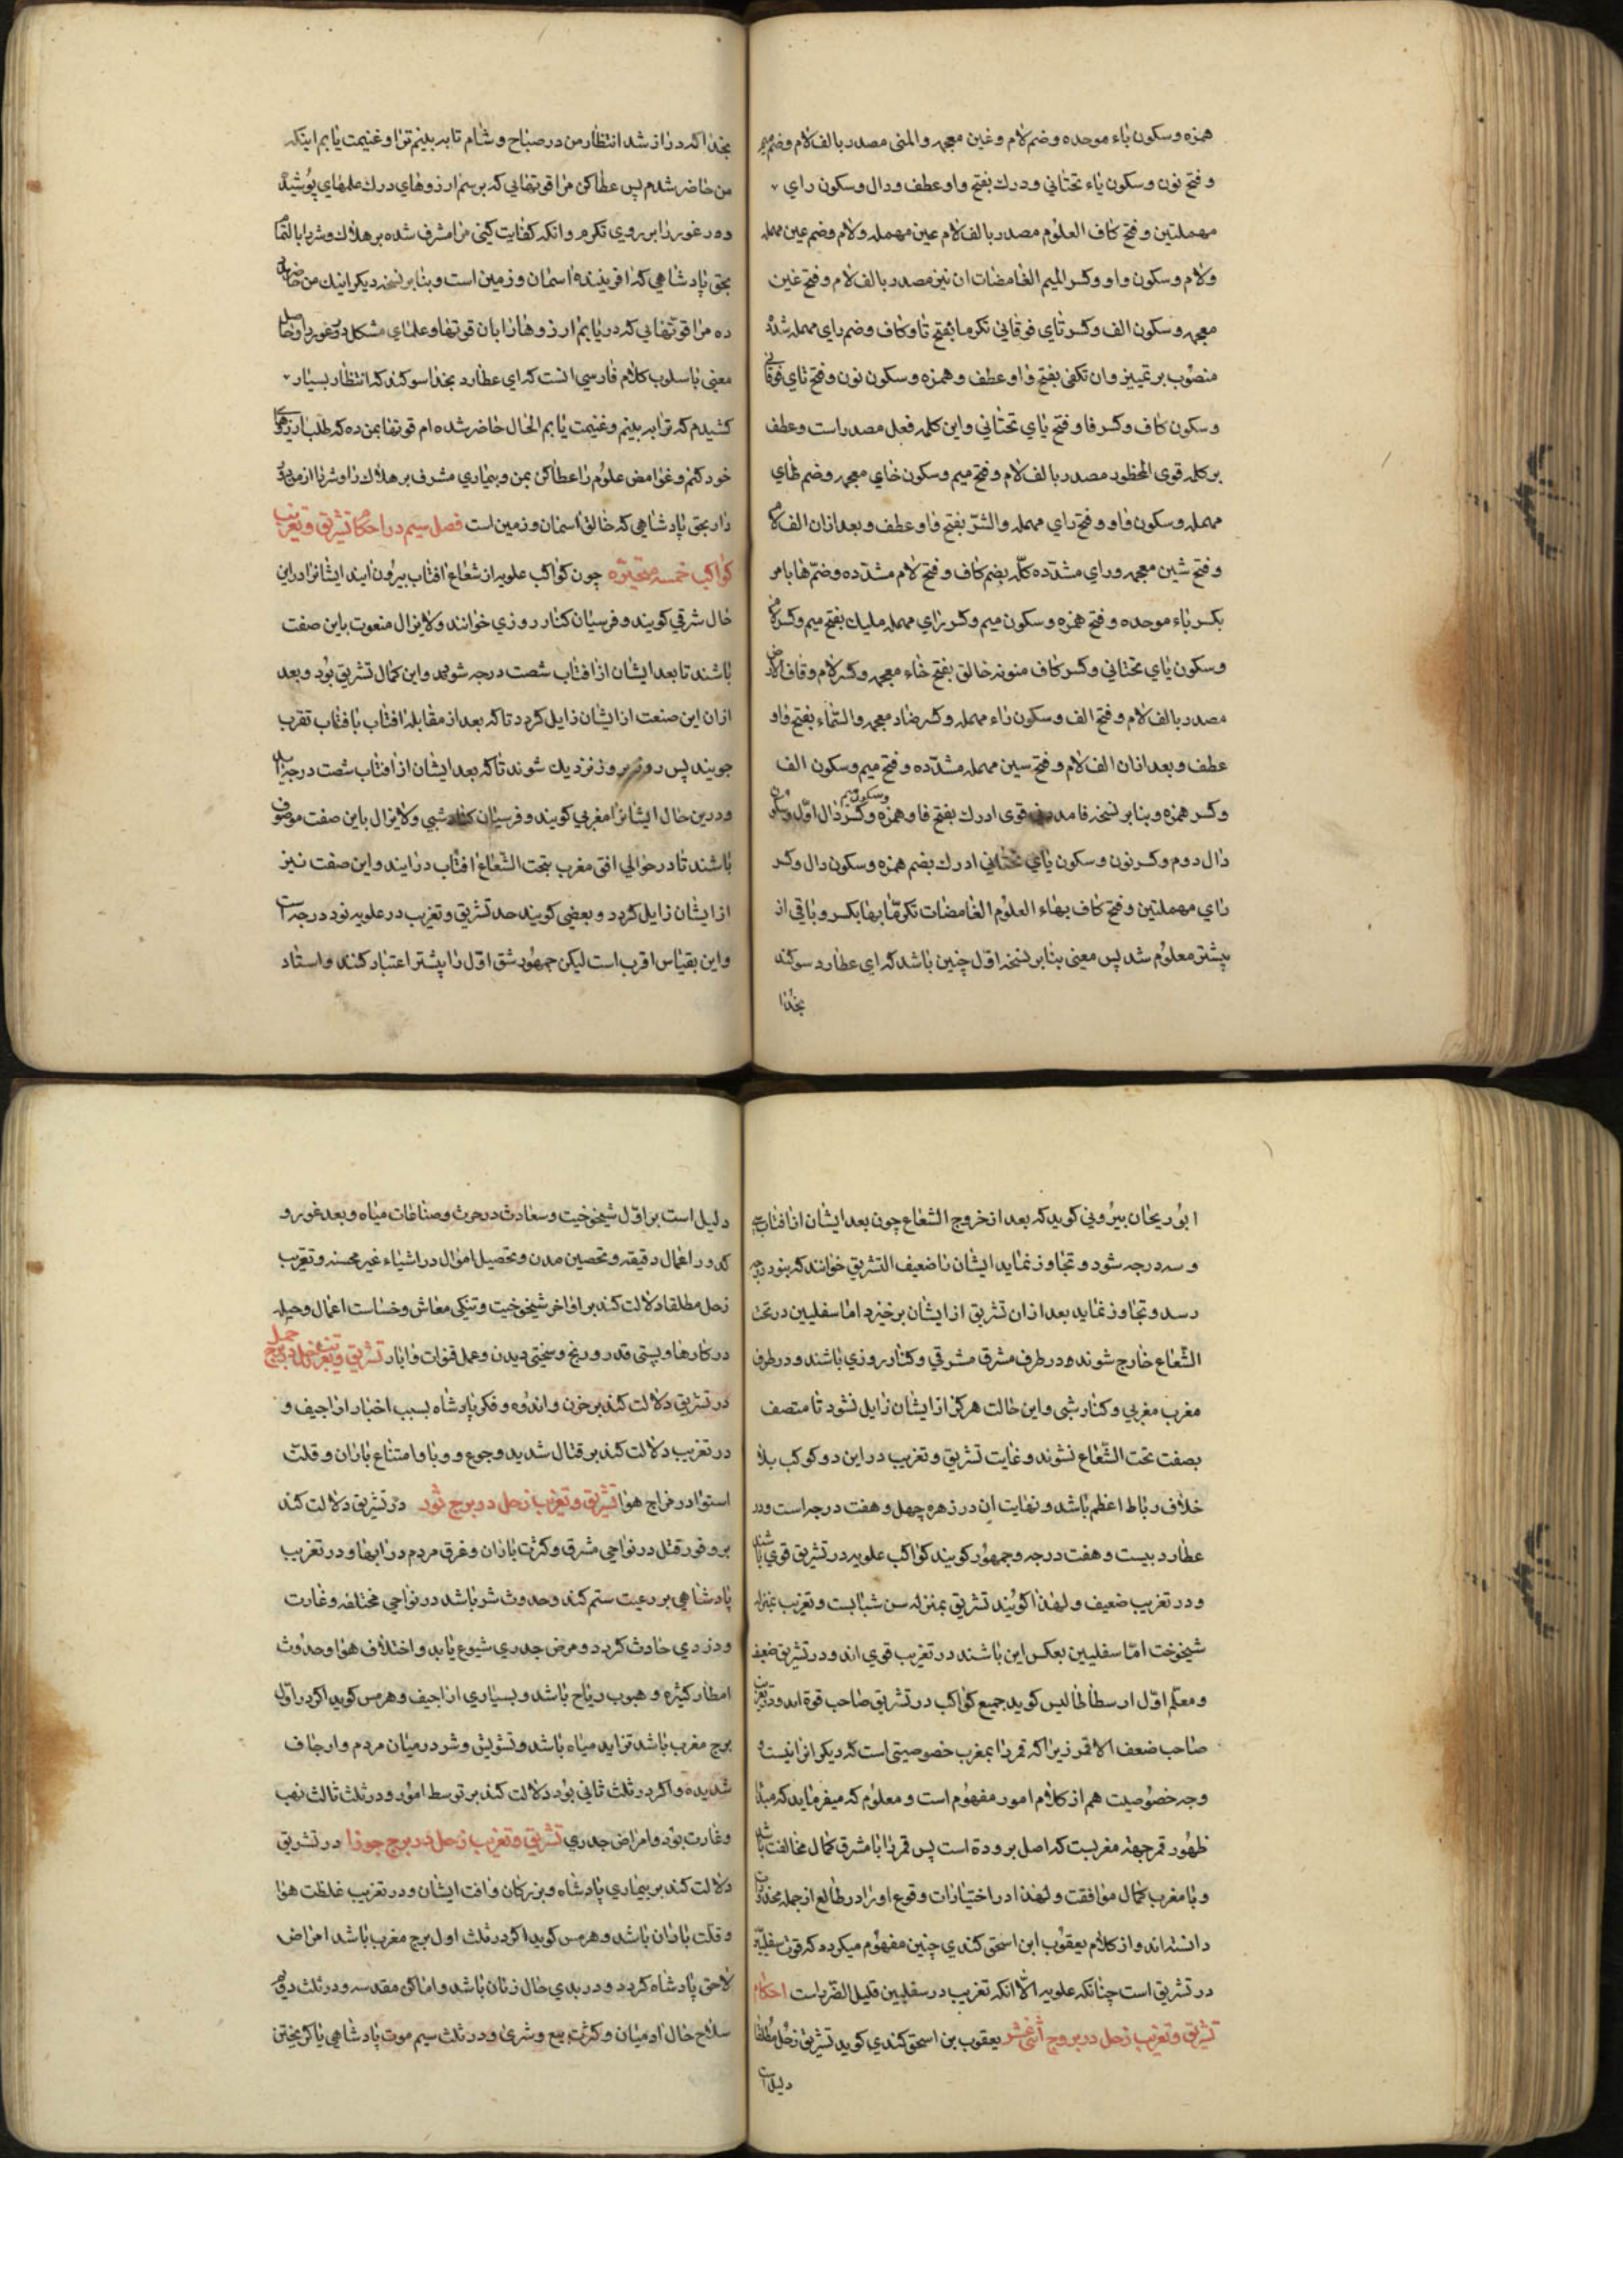 همزه و سکون باء موحده و ضم لام و غین معجمه والمنی مصدر بالف لام و ضم میم
و فتح نون و سکون یاء تحتانی و درك بفتح واو عطف و دال و سکون رای
مهملتین و فتح کاف العلوم مصدر بالف لام عین مهمله و لام و ضم عین مهمله
ولام و سکون واو و کسر المیم الغامضات ان نیز مصدر بالف لام و فتح غین
معجمه و سکون الف و کسر تای فوقانی تکرما بفتح تا و کاف و ضم رای مهمله مشدده
منصوب بر تمییز وان تکفی بفتح واو عطف و همزه و سکون نون و فتح تای فوقانی
و سکون کاف و کسر فا و فتح یای تحتانی و این کلمه فعل مصدر است و عطف
بر کلمه قوی المحظور مصدر بالف لام و فتح میم و سکون خای معجمه و ضم ظای
مهمله و سکون واو و فتح رای مهمله والشرّ بفتح واو عطف و بعد ازان الف لام
و فتح شین معجمه و رای مشدّده کلّه بضم کاف و فتح لام مشدّده و ضمّ ها بامر
بکسر باء موحده و فتح همزه و سکون میم و کسر رای مهمله ملیك بفتح میم و کسر لام
و سکون یای تحتانی و کسر کاف منونه خالق بفتح خاء معجمه و کسر لام و قاف الارض
مصدر بالف لام و فتح الف و سکون راء مهمله و کسر ضاد معجمه والسّماء بفتح واو
عطف و بعد ازان الف لام و فتح سین مهمله مشدّده و فتح میم و سکون الف
و کسر همزه و بنابر نسخه فامددنی قوی ادرك بفتح فا و همزه و سکون میم و کسر دال اوّل و سکون
دال دوم و کسر نون و سکون یای تحتانی ادرك بضم همزه و سکون دال و کسر
رای مهملتین و فتح کاف بهاء العلوم الغامضات تکرمّا بها بکسر و باقی از
پیشتر معلوم شد پس معنی بنابر نسخه اوّل چنین باشد که ای عطارد سوکند
بخدا
بخدا که دراز شد انتظار من در صباح و شام تا به بینم ترا و غنیمت یابم اینکه
من حاضر شدم پس عطا کن مرا قوتهایی که برسم ارزوهای درك علمهای پوشیده
بحق پادشاهی که افریننده اسمان و زمین است و بنابر نسخه دیکر اینك من حاضرم
ده مرا قوتهایی که دریابم ارزوها را بان قوتها و علمای مشکل
معنی باسلوب کلام فارسی انست که ای عطارد بخدا سوکند که انتظار بسیار
کشیدم که ترا به بینم و غنیمت یابم الحال حاضر شده ام قوتها بمن ده که طلب ارزوهای
خود کنم و غوامض علوم را عطا کن بمن و بیماری مشرف بر هلاك را و شر را از من دور
دار بحق پادشاهی که خالق اسمان و زمین است فصل سیم در احکام تشریق و تغریب
کواکب خمسه متحیّره چون کواکب علویه از شعاع افتاب بیرون ایند ایشانرا در این
حال شرقی کویند و فرسیان کنار روزی خوانند و لایزال منعوت باین صفت
باشند تا بعد ایشان از افتاب شصت درجه شود و این کمال تشریق بود و بعد
ازان این صنعت از ایشان زایل کردد تا که بعد از مقابله افتاب با افتاب تقرب
جویند پس روز بروز نزدیك شوند تا که بعد ایشان از افتاب شصت درجه است
و درین حال ایشانرا مغربی کویند و فرسیان کنار شبی و لایزال باین صفت موصوف
باشند تا در حوالی افق مغرب بتحت الشّعاع افتاب درایند و این صفت نیز
از ایشان زایل کردد و بعضی کویند حد تشریق و تغریب در علویه نود درجه است
و این بقیاس اقرب است لیکن جمهور شق اوّل را پیشتر اعتبار کنند و استاد
ابو ریحان بیرونی کوید که بعد از خروج الشعاع چون بعد ایشان از افتاب سی
و سه درجه شود و تجاوز نماید ایشان را ضعیف التشریق خوانند که بنود درجه
رسد و تجاوز نماید بعد ازان تشریق از ایشان برخیزد اما سفلیین در تحت
الشّعاع خارج شوند و در طرف مشرق مشرقی و کنار روزی باشند و در طرف
مغرب مغربی و کنار شبی و این حالت هرکز از ایشان زایل نشود تا متصف
بصفت تحت الشّعاع نشوند و غایت تشریق و تغریب در این دو کوکب بلا
خلاف رباط اعظم باشد و نهایت ان در زهره چهل و هفت درجه است و در
عطارد بیست و هفت درجه و جمهور کویند کواکب علویه در تشریق قوی باشند
و در تغریب ضعیف و لهذا کویند تشریق بمنزله سن شبابست و تغریب بمنزله
شیخوخت امّا سفلیین بعکس این باشند در تغریب قوی اند و در تشریق ضعیف
و معلّم اوّل ارسطاطالیس کوید جمیع کواکب در تشریق صاحب قوة اند و در تغریب
صاحب ضعف الا قمر زیرا که قمر را بمغرب خصوصیتی است که دیکر انرا نیست و
وجه خصوصیت هم از کلام امور مفهوم است و معلوم که میفرماید که مبدأ
ظهور قمر جهة مغربست که اصل برودة است پس قمر را با مشرق کمال مخالفت باشد
و با مغرب کمال موافقت و لهذا در اختیارات وقوع او را در طالع از جمله محذورات
دانسته اند و از کلام یعقوب ابن اسحق کندی چنین مفهوم میکردد که قوت سفلیّه
در تشریق است چنانکه علویه الّا انکه تغریب در سفلیین قلیل الضرر است احکام
تشریق و تغریب زحل در بروج اثنی عشر یعقوب بن اسحق کندی کوید تشریق زحل مطلقا
دلیل است
دلیل است بر اوّل شیخوخیت و سعادت در حرث و صناعات میاه و بعد غور و
کد در اعمال دقیقه و تحصین مدن و تحصیل اموال در اشیاء غیر محسنه و تغریب
زحل مطلقا دلالت کند بر اواخر شیخوخیت و تنکی معاش و خساست اعمال و حیله
در کارها و پستی قدر و رنج و سختی دیدن و عمل قنوات و ابار تشریق و تغریب زحل در برج حمل
در تشریق دلالت کند بر حزن و اندوه و فکر پادشاه بسبب اخبار اراجیف و
در تغریب دلالت کند بر قتال شدید و جوع و وبا و امتناع باران و قلت
استوا در مزاج هوا تشریق و تغریب زحل در برج ثور در تشریق دلالت کند
بر وفور قتل در نواحی مشرق و کثرت باران و غرق مردم در ابها و در تغریب
پادشاهی بر رعیت ستم کند و حدوث شر باشد در نواحی مختلفه و غارت
و دزدی حادث کردد و مرض جدری شیوع یابد و اختلاف هوا و حدوث
امطار کثیره و هبوب ریاح باشد و بسیاری اراجیف و هرمس کوید اکر در اوّل
برج مغرب باشد تزاید میاه باشد و تشویش و شر در میان مردم و ارجاف
شدیده و اکر در ثلث ثانی بود دلالت کند بر توسط امور و در ثلث ثالث نهب
و غارت بود و امراض جدری تشریق و تغریب زحل در برج جوزا در تشریق
دلالت کند بر بیماری پادشاه و بزرکان و افت ایشان و در تغریب غلظت هوا
و قلت باران باشد و هرمس کوید اکر در ثلث اول برج مغرب باشد امراض
لاحق پادشاه کردد و در بدی حال زنان باشد و اماکن مقدسه و در ثلث دویم
سلاح حال ادمیان و کثرت بیع و شری و در ثلث سیم موت پادشاهی یا کریختن